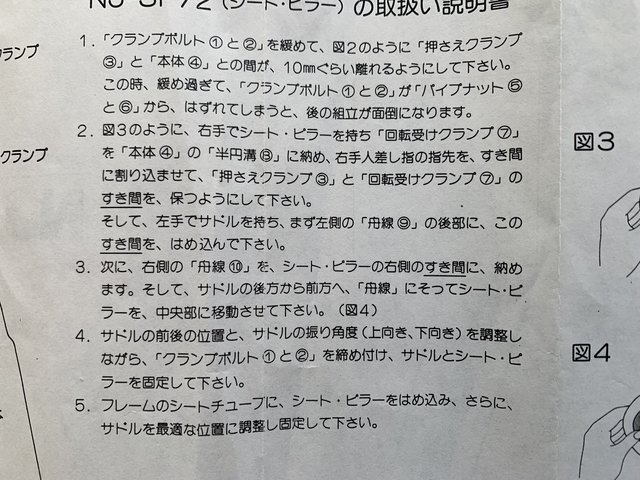 NJ SP72 (シート・ピラー) の取扱い説明書
1. 「クランプボルト①と②」を緩めて、図2のように「押さえクランプ
③」と「本体④」との間が、10mmぐらい離れるようにして下さい。
この時、緩め過ぎて、「クランプボルト①と②」が「パイプナット⑤
と⑥」から、はずれてしまうと、後の組立が面倒になります。
2. 図3のように、右手でシート・ピラーを持ち「回転受けクランプ⑦」
を「本体④」の「半円溝⑧」に納め、右手人差し指の指先を、すき間
に割り込ませて、「押さえクランプ③」と「回転受けクランプ⑦」の
すき間を、保つようにして下さい。
そして、左手でサドルを持ち、まず左側の「舟線⑨」の後部に、この
すき間を、はめ込んで下さい。
3. 次に、右側の「舟線⑩」を、シート・ピラーの右側のすき間に、納め
ます。そして、サドルの後方から前方へ、「舟線」にそってシート・ピ
ラーを、中央部に移動させて下さい。(図4)
4. サドルの前後の位置と、サドルの振り角度(上向き、下向き)を調整し
ながら、「クランプボルト①と②」を締め付け、サドルとシート・ピ
ラーを固定して下さい。
5. フレームのシートチューブに、シート・ピラーをはめ込み、さらに、
サドルを最適な位置に調整し固定して下さい。
クランプ
クランプ
図3
図4